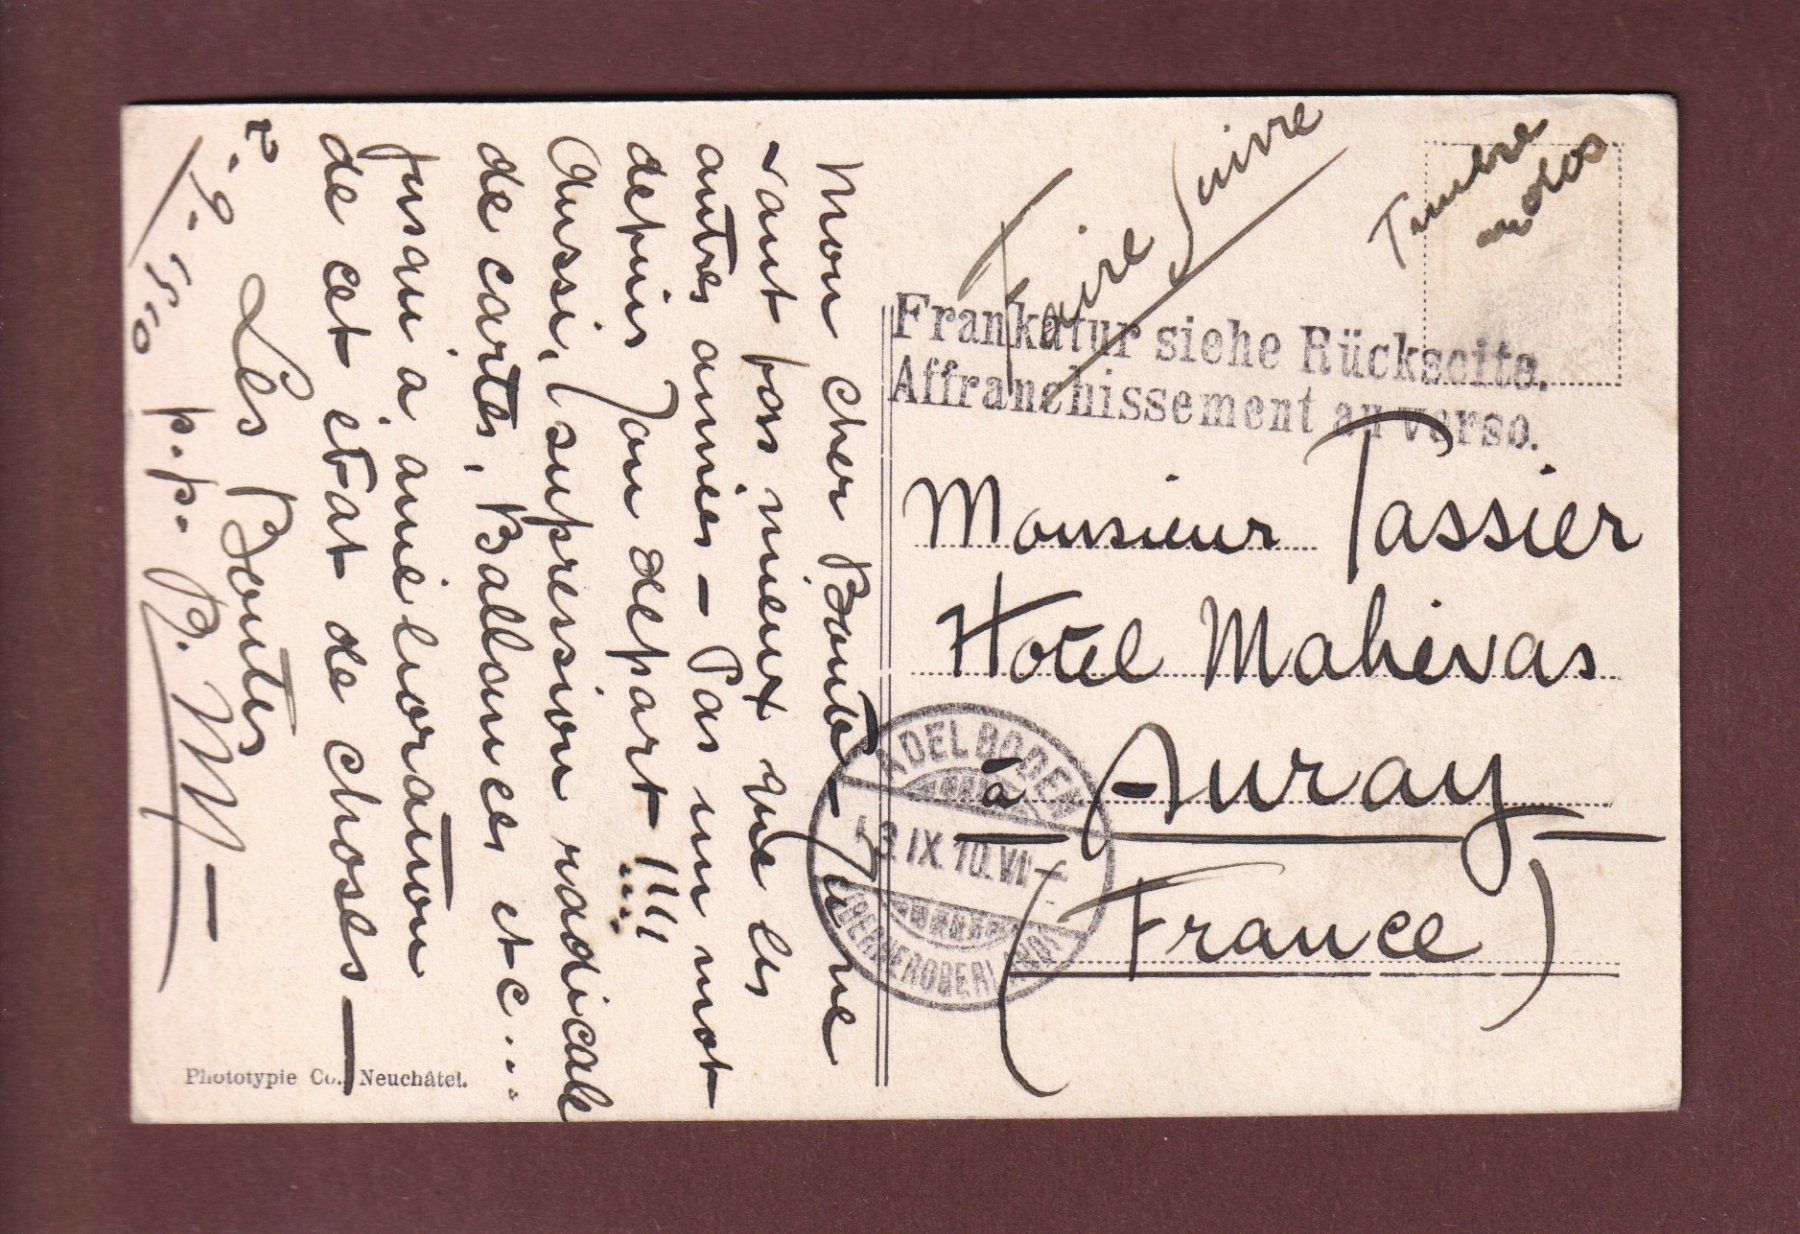 Mon cher Bouté - Tu ne
vaut pas mieux que les
autres années - Pas un mot
depuis Ton départ !!!!
Aussi, supression radicale
de cartes, Ballances etc...
Jusqu'à amélioration
de cet état de choses -
Les Boutés
2-9-1910 p.p. B. M -
Phototypie Co., Neuchâtel.
Timbre
au dos
Faire Suivre
Frankatur siehe Rückseite.
Affranchissement au verso.
Monsieur Tassier
Hotel Mahévas
à Auray
(France)
ADELBODEN
3.IX.10.VII
(BERNEROBERLAND)